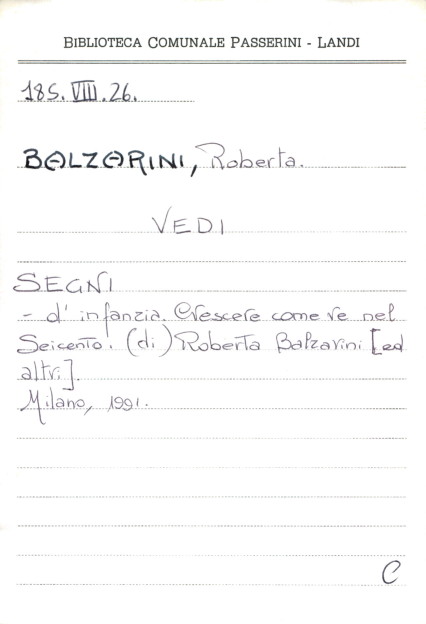 BIBLIOTECA COMUNALE PASSERINI - LANDI
185. VIII. 26.
BALZARINI, Roberta.
VEDI
SEGNI
- d' infanzia. Crescere come re nel
Seicento. (di) Roberta Balzarini [ed
altri].
Milano, 1991.
C